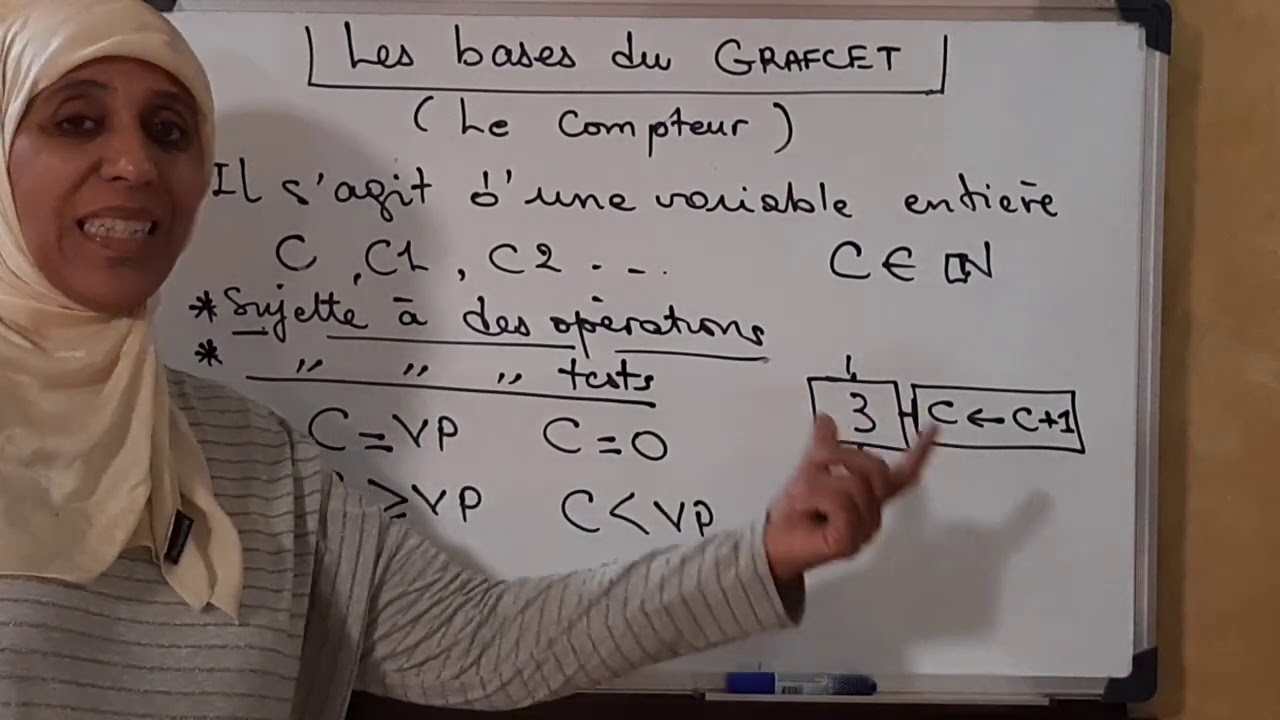 Les bases du GRAFCET
(Le Compteur)
Il s'agit d'une variable entière
C, C1, C2 . - ..
C ∈ ℕ
* Sujette à des opérations
* " " " tests
C = VP C = 0
≥ VP C < VP
3 C ← C+1